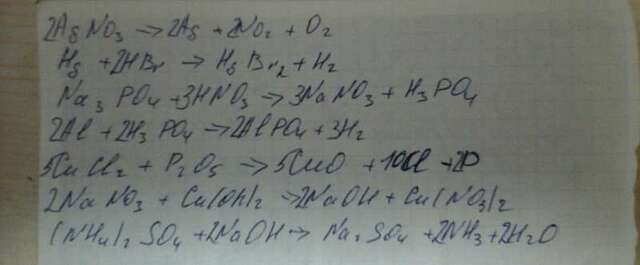 2AgNO3 → 2Ag + 2NO2 + O2
Hg + 2HBr → HgBr2 + H2
Na3PO4 + 3HNO3 → 3NaNO3 + H3PO4
2Al + 2H3PO4 → 2AlPO4 + 3H2
5CuCl2 + P2O5 → 5CuO + 10Cl + 2P
2NaNO3 + Cu(OH)2 → 2NaOH + Cu(NO3)2
(NH4)2SO4 + 2NaOH → Na2SO4 + 2NH3 + 2H2O